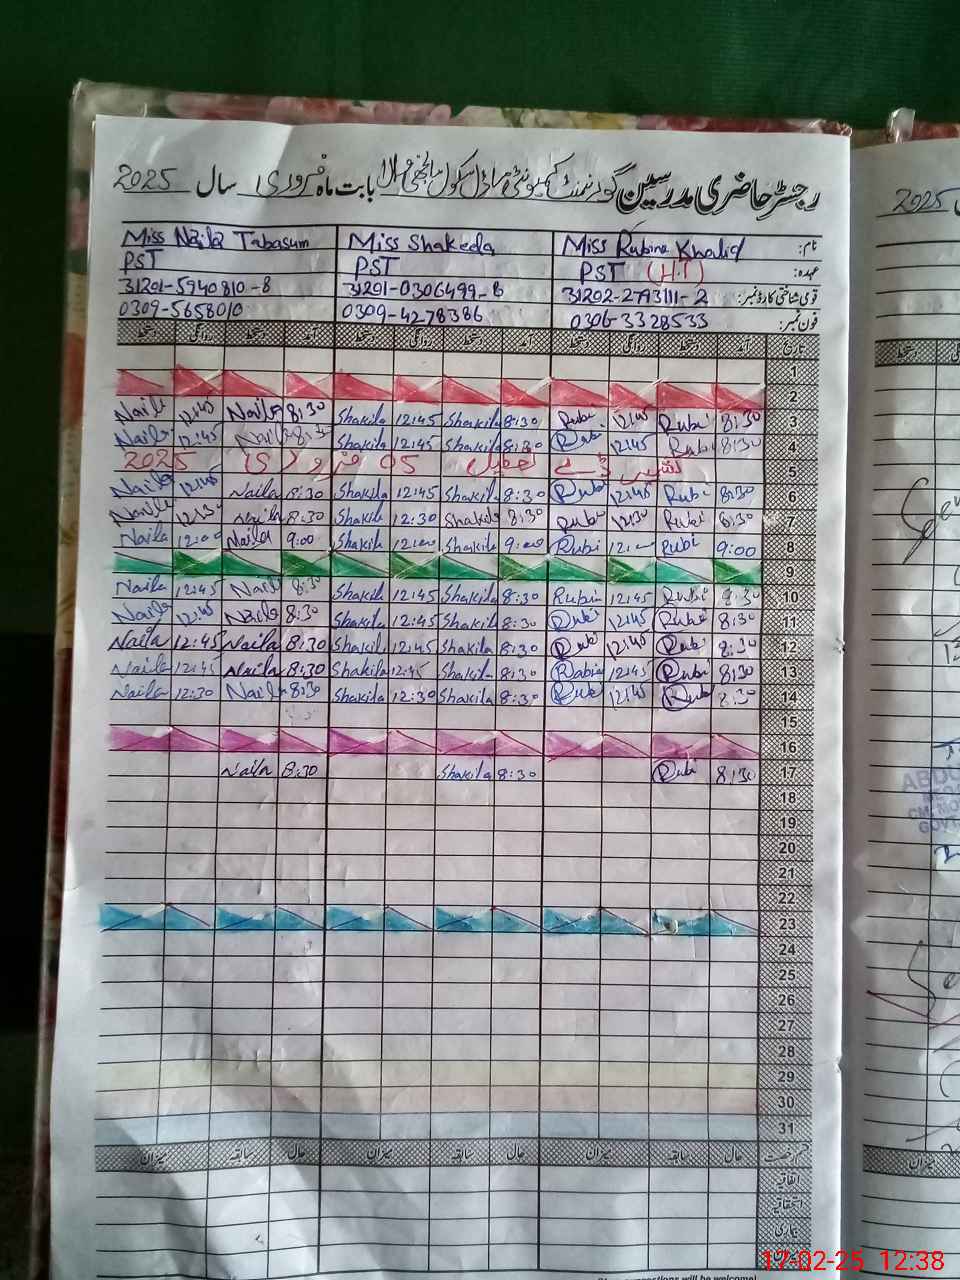 رجسٹر حاضری مدرسین گورنمنٹ کمیونٹی ماڈل سکول بابت ماہ فروری سال 2025
نام: Miss Rubina Khalid Miss Shakeela Miss Naila Tabasum
عہدہ: PST (H.T) PST PST
قومی شناختی کارڈ نمبر: 31202-2793111-2 31201-0306499-8 31201-5940810-8
فون نمبر: 0306-3328533 0309-4278386 0309-5658010
تاریخ آمد دستخط روانگی دستخط آمد دستخط روانگی دستخط آمد دستخط روانگی دستخط
1
2
3 8:30 Rubi 12:45 Rubi 8:30 Shakila 12:45 Shakila 8:30 Naila 12:45 Naila
4 8:30 Rubi 12:45 Rubi 8:30 Shakila 12:45 Shakila 8:30 Naila 12:45 Naila
5 کشمیر ڈے تعطیل 05 فروری 2025
6 8:30 Rubi 12:45 Rubi 8:30 Shakila 12:45 Shakila 8:30 Naila 12:45 Naila
7 8:30 Rubi 12:30 Rubi 8:30 Shakila 12:30 Shakila 8:30 Naila 12:30 Naila
8 9:00 Rubi 12:00 Rubi 9:00 Shakila 12:00 Shakila 9:00 Naila 12:00 Naila
9
10 8:30 Rubi 12:45 Rubin 8:30 Shakila 12:45 Shakila 8:30 Naila 12:45 Naila
11 8:30 Rubi 12:45 Rubi 8:30 Shakila 12:45 Shakila 8:30 Naila 12:45 Naila
12 8:30 Rubi 12:45 Rubi 8:30 Shakila 12:45 Shakila 8:30 Naila 12:45 Naila
13 8:30 Rubi 12:45 Rabia 8:30 Shakila 12:45 Shakila 8:30 Naila 12:45 Naila
14 8:30 Rubi 12:45 Rubi 8:30 Shakila 12:30 Shakila 8:30 Naila 12:30 Naila
15
16
17 8:30 Rubi 8:30 Shakila 8:30 Naila
18
19
20
21
22
23
24
25
26
27
28
29
30
31
قسم رخصت حال سابقہ میزان حال سابقہ میزان حال سابقہ میزان
اتفاقیہ
استحقاقیہ
بیماری
میزان
2025
ABDU
GOVT
17-02-25 12:38